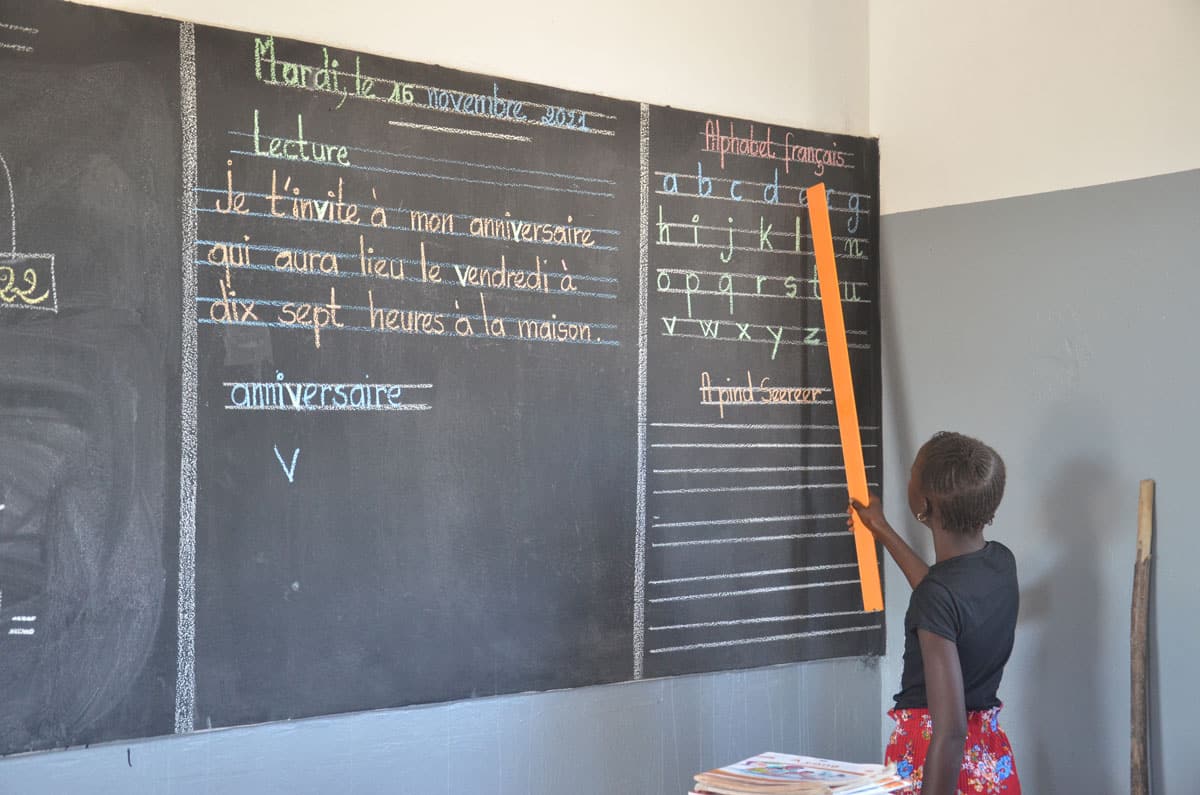 22
Mardi, le 16 novembre 2021
Lecture
Je t'invite à mon anniversaire
qui aura lieu le vendredi à
dix sept heures à la maison.
anniversaire
v
Alphabet français
a b c d e g
h i j k l n
o p q r s t u
v w x y z
Apind Seereer